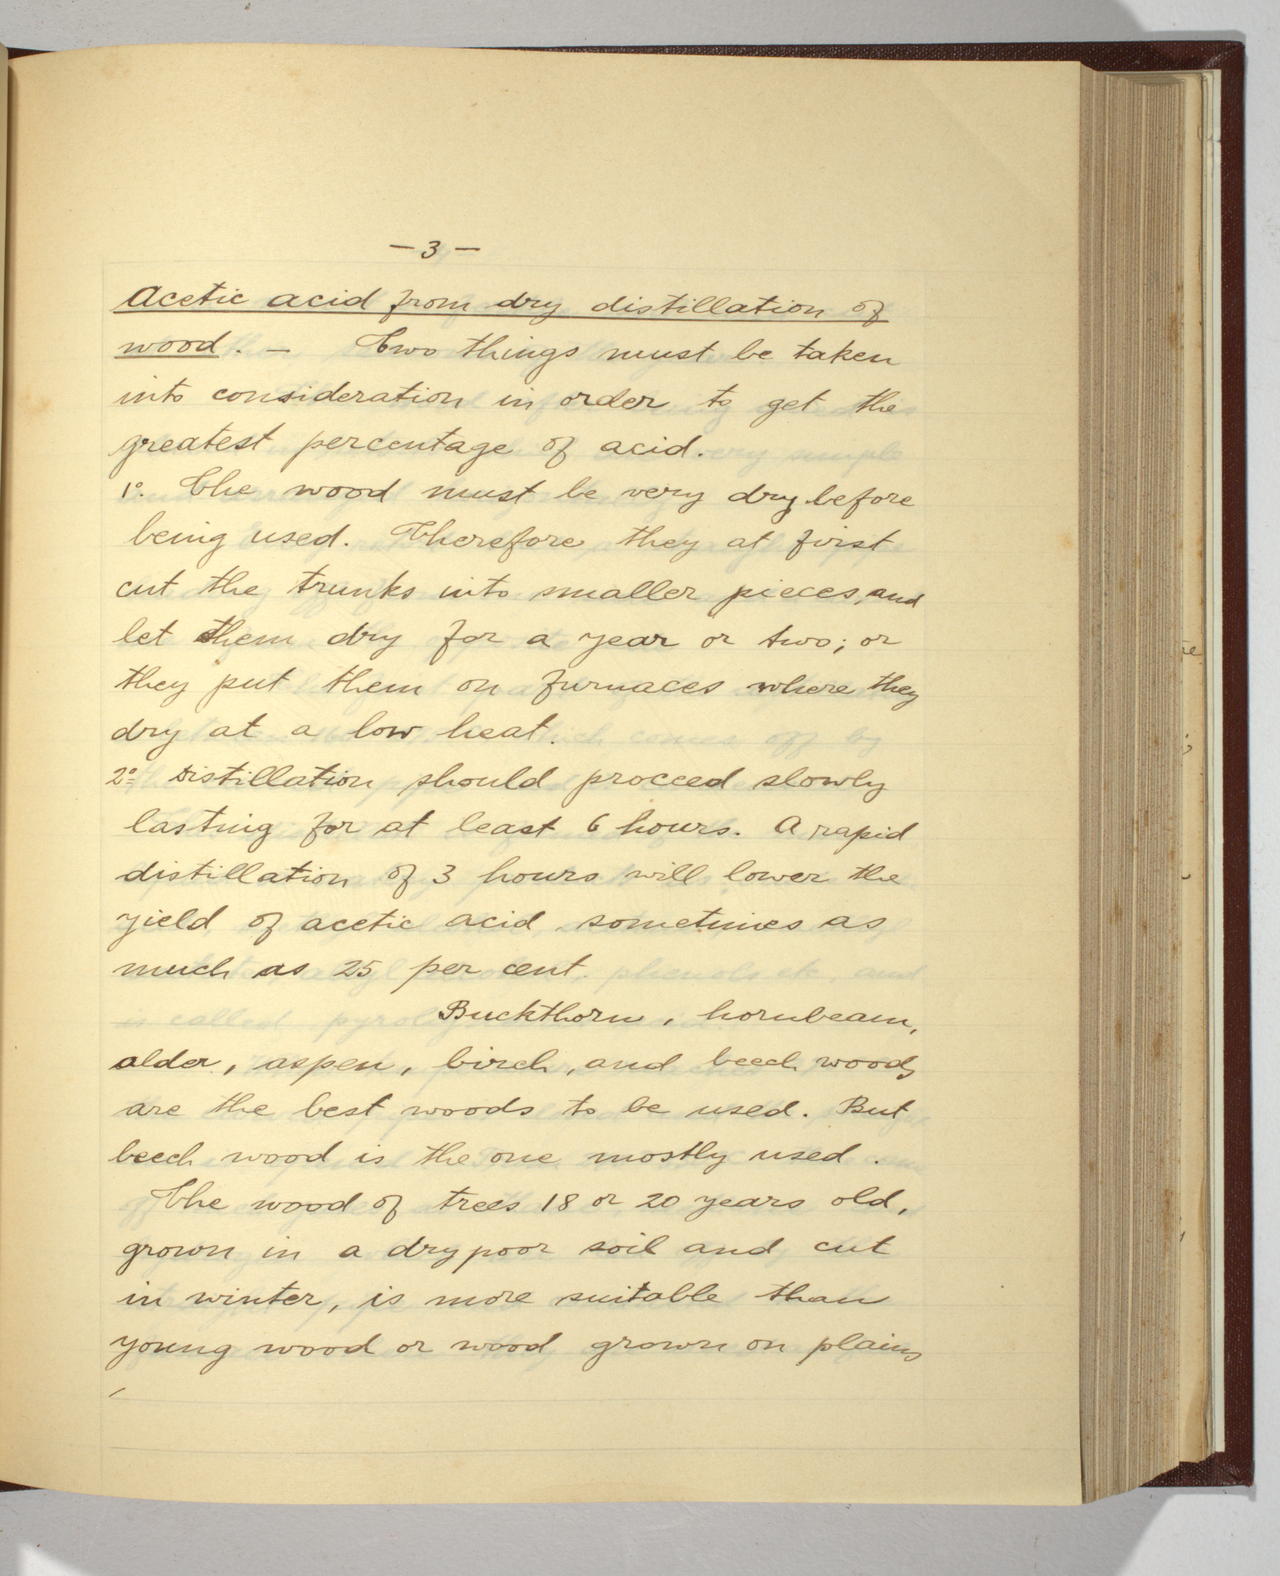 — 3 —
Acetic acid from dry distillation of
wood. — Two things must be taken
into consideration in order to get the
greatest percentage of acid.
1º. The wood must be very dry before
being used. Therefore they at first
cut the trunks into smaller pieces, and
let them dry for a year or two; or
they put them on furnaces where they
dry at a low heat.
2º Distillation should proceed slowly
lasting for at least 6 hours. A rapid
distillation of 3 hours will lower the
yield of acetic acid sometimes as
much as 25 per cent.
Buckthorn, hornbeam,
alder, aspen, birch, and beech woods
are the best woods to be used. But
beech wood is the one mostly used.
The wood of trees 18 or 20 years old,
grown in a dry poor soil and cut
in winter, is more suitable than
young wood or wood grown on plains